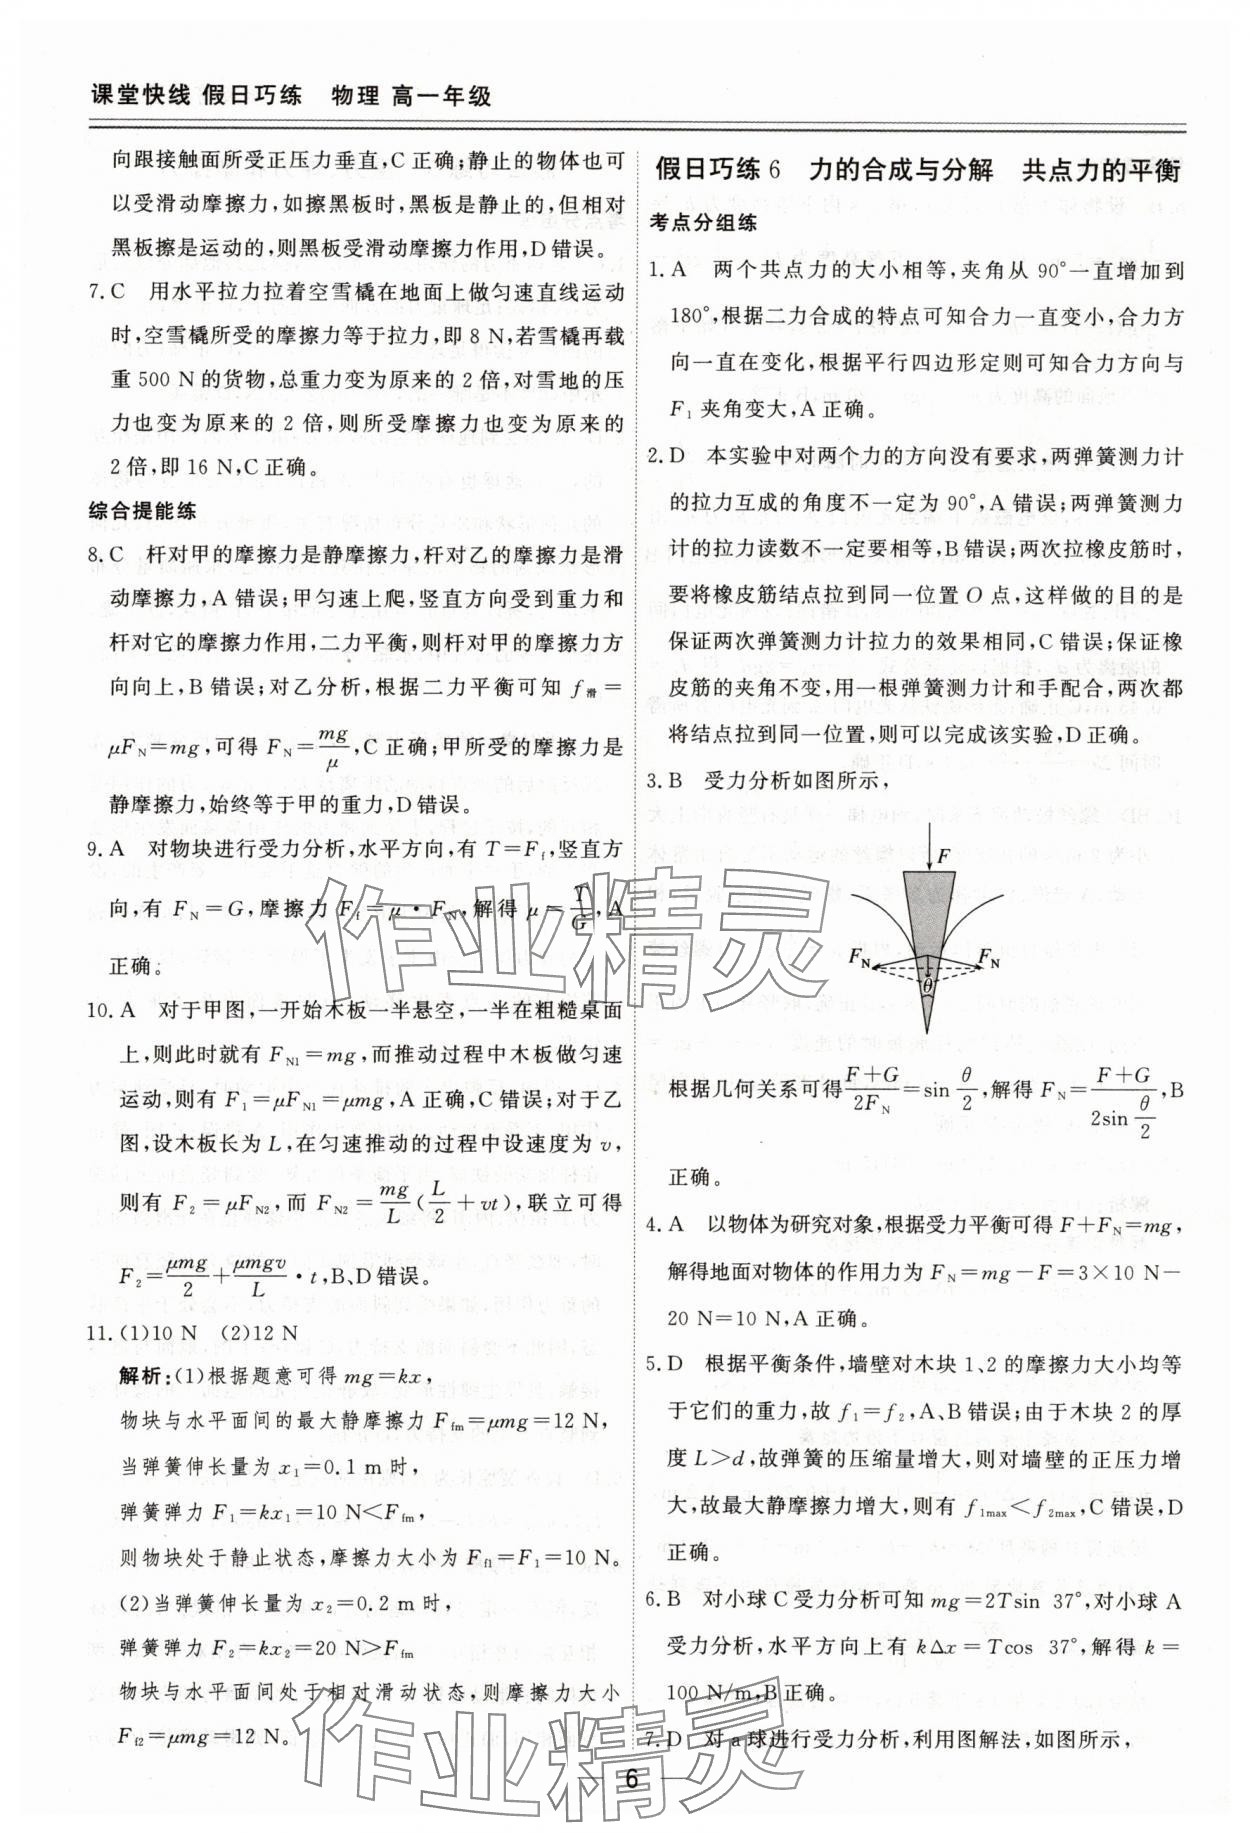 课堂快线 假日巧练 物理 高一年级
向跟接触面所受正压力垂直,C正确;静止的物体也可
以受滑动摩擦力,如擦黑板时,黑板是静止的,但相对
黑板擦是运动的,则黑板受滑动摩擦力作用,D错误。
7. C 用水平拉力拉着空雪橇在地面上做匀速直线运动
时,空雪橇所受的摩擦力等于拉力,即8 N,若雪橇再载
重500 N的货物,总重力变为原来的2倍,对雪地的压
力也变为原来的2倍,则所受摩擦力也变为原来的
2倍,即16 N,C正确。
综合提能练
8. C 杆对甲的摩擦力是静摩擦力,杆对乙的摩擦力是滑
动摩擦力,A错误;甲匀速上爬,竖直方向受到重力和
杆对它的摩擦力作用,二力平衡,则杆对甲的摩擦力方
向向上,B错误;对乙分析,根据二力平衡可知 f滑=
μFN=mg,可得 FN=mg/μ,C正确;甲所受的摩擦力是
静摩擦力,始终等于甲的重力,D错误。
9. A 对物块进行受力分析,水平方向,有 T=Ff,竖直方
向,有 FN=G,摩擦力 Ff=μ·FN,解得 μ=T/G,A
正确。
10. A 对于甲图,一开始木板一半悬空,一半在粗糙桌面
上,则此时就有 FN1=mg,而推动过程中木板做匀速
运动,则有 F1=μFN1=μmg,A正确,C错误;对于乙
图,设木板长为 L,在匀速推动的过程中设速度为 v,
则有 F2=μFN2,而 FN2=mg/L(L/2+vt),联立可得
F2=μmg/2+μmgv/L·t,B、D错误。
11. (1)10 N (2)12 N
解析:(1)根据题意可得 mg=kx,
物块与水平面间的最大静摩擦力 Ffm=μmg=12 N,
当弹簧伸长量为 x1=0.1 m时,
弹簧弹力 F1=kx1=10 N<Ffm,
则物块处于静止状态,摩擦力大小为 Ff1=F1=10 N。
(2)当弹簧伸长量为 x2=0.2 m时,
弹簧弹力 F2=kx2=20 N>Ffm
物块与水平面间处于相对滑动状态,则摩擦力大小
Ff2=μmg=12 N。
假日巧练6 力的合成与分解 共点力的平衡
考点分组练
1. A 两个共点力的大小相等,夹角从90°一直增加到
180°,根据二力合成的特点可知合力一直变小,合力方
向一直在变化,根据平行四边形定则可知合力方向与
F1 夹角变大,A正确。
2. D 本实验中对两个力的方向没有要求,两弹簧测力计
的拉力互成的角度不一定为90°,A错误;两弹簧测力
计的拉力读数不一定要相等,B错误;两次拉橡皮筋时,
要将橡皮筋结点拉到同一位置O点,这样做的目的是
保证两次弹簧测力计拉力的效果相同,C错误;保证橡
皮筋的夹角不变,用一根弹簧测力计和手配合,两次都
将结点拉到同一位置,则可以完成该实验,D正确。
3. B 受力分析如图所示,
F
FN θ FN
根据几何关系可得(F+G)/2FN=sin θ/2,解得 FN=(F+G)/(2sin θ/2),B
正确。
4. A 以物体为研究对象,根据受力平衡可得 F+FN=mg,
解得地面对物体的作用力为 FN=mg-F=3×10 N-
20 N=10 N,A正确。
5. D 根据平衡条件,墙壁对木块1、2的摩擦力大小均等
于它们的重力,故 f1=f2,A、B错误;由于木块2的厚
度 L>d,故弹簧的压缩量增大,则对墙壁的正压力增
大,故最大静摩擦力增大,则有 f1max<f2max,C错误,D
正确。
6. B 对小球C受力分析可知 mg=2Tsin 37°,对小球A
受力分析,水平方向上有 kΔx=Tcos 37°,解得 k=
100 N/m,B正确。
7. D 对a球进行受力分析,利用图解法,如图所示,
6
作业精灵
作业精灵